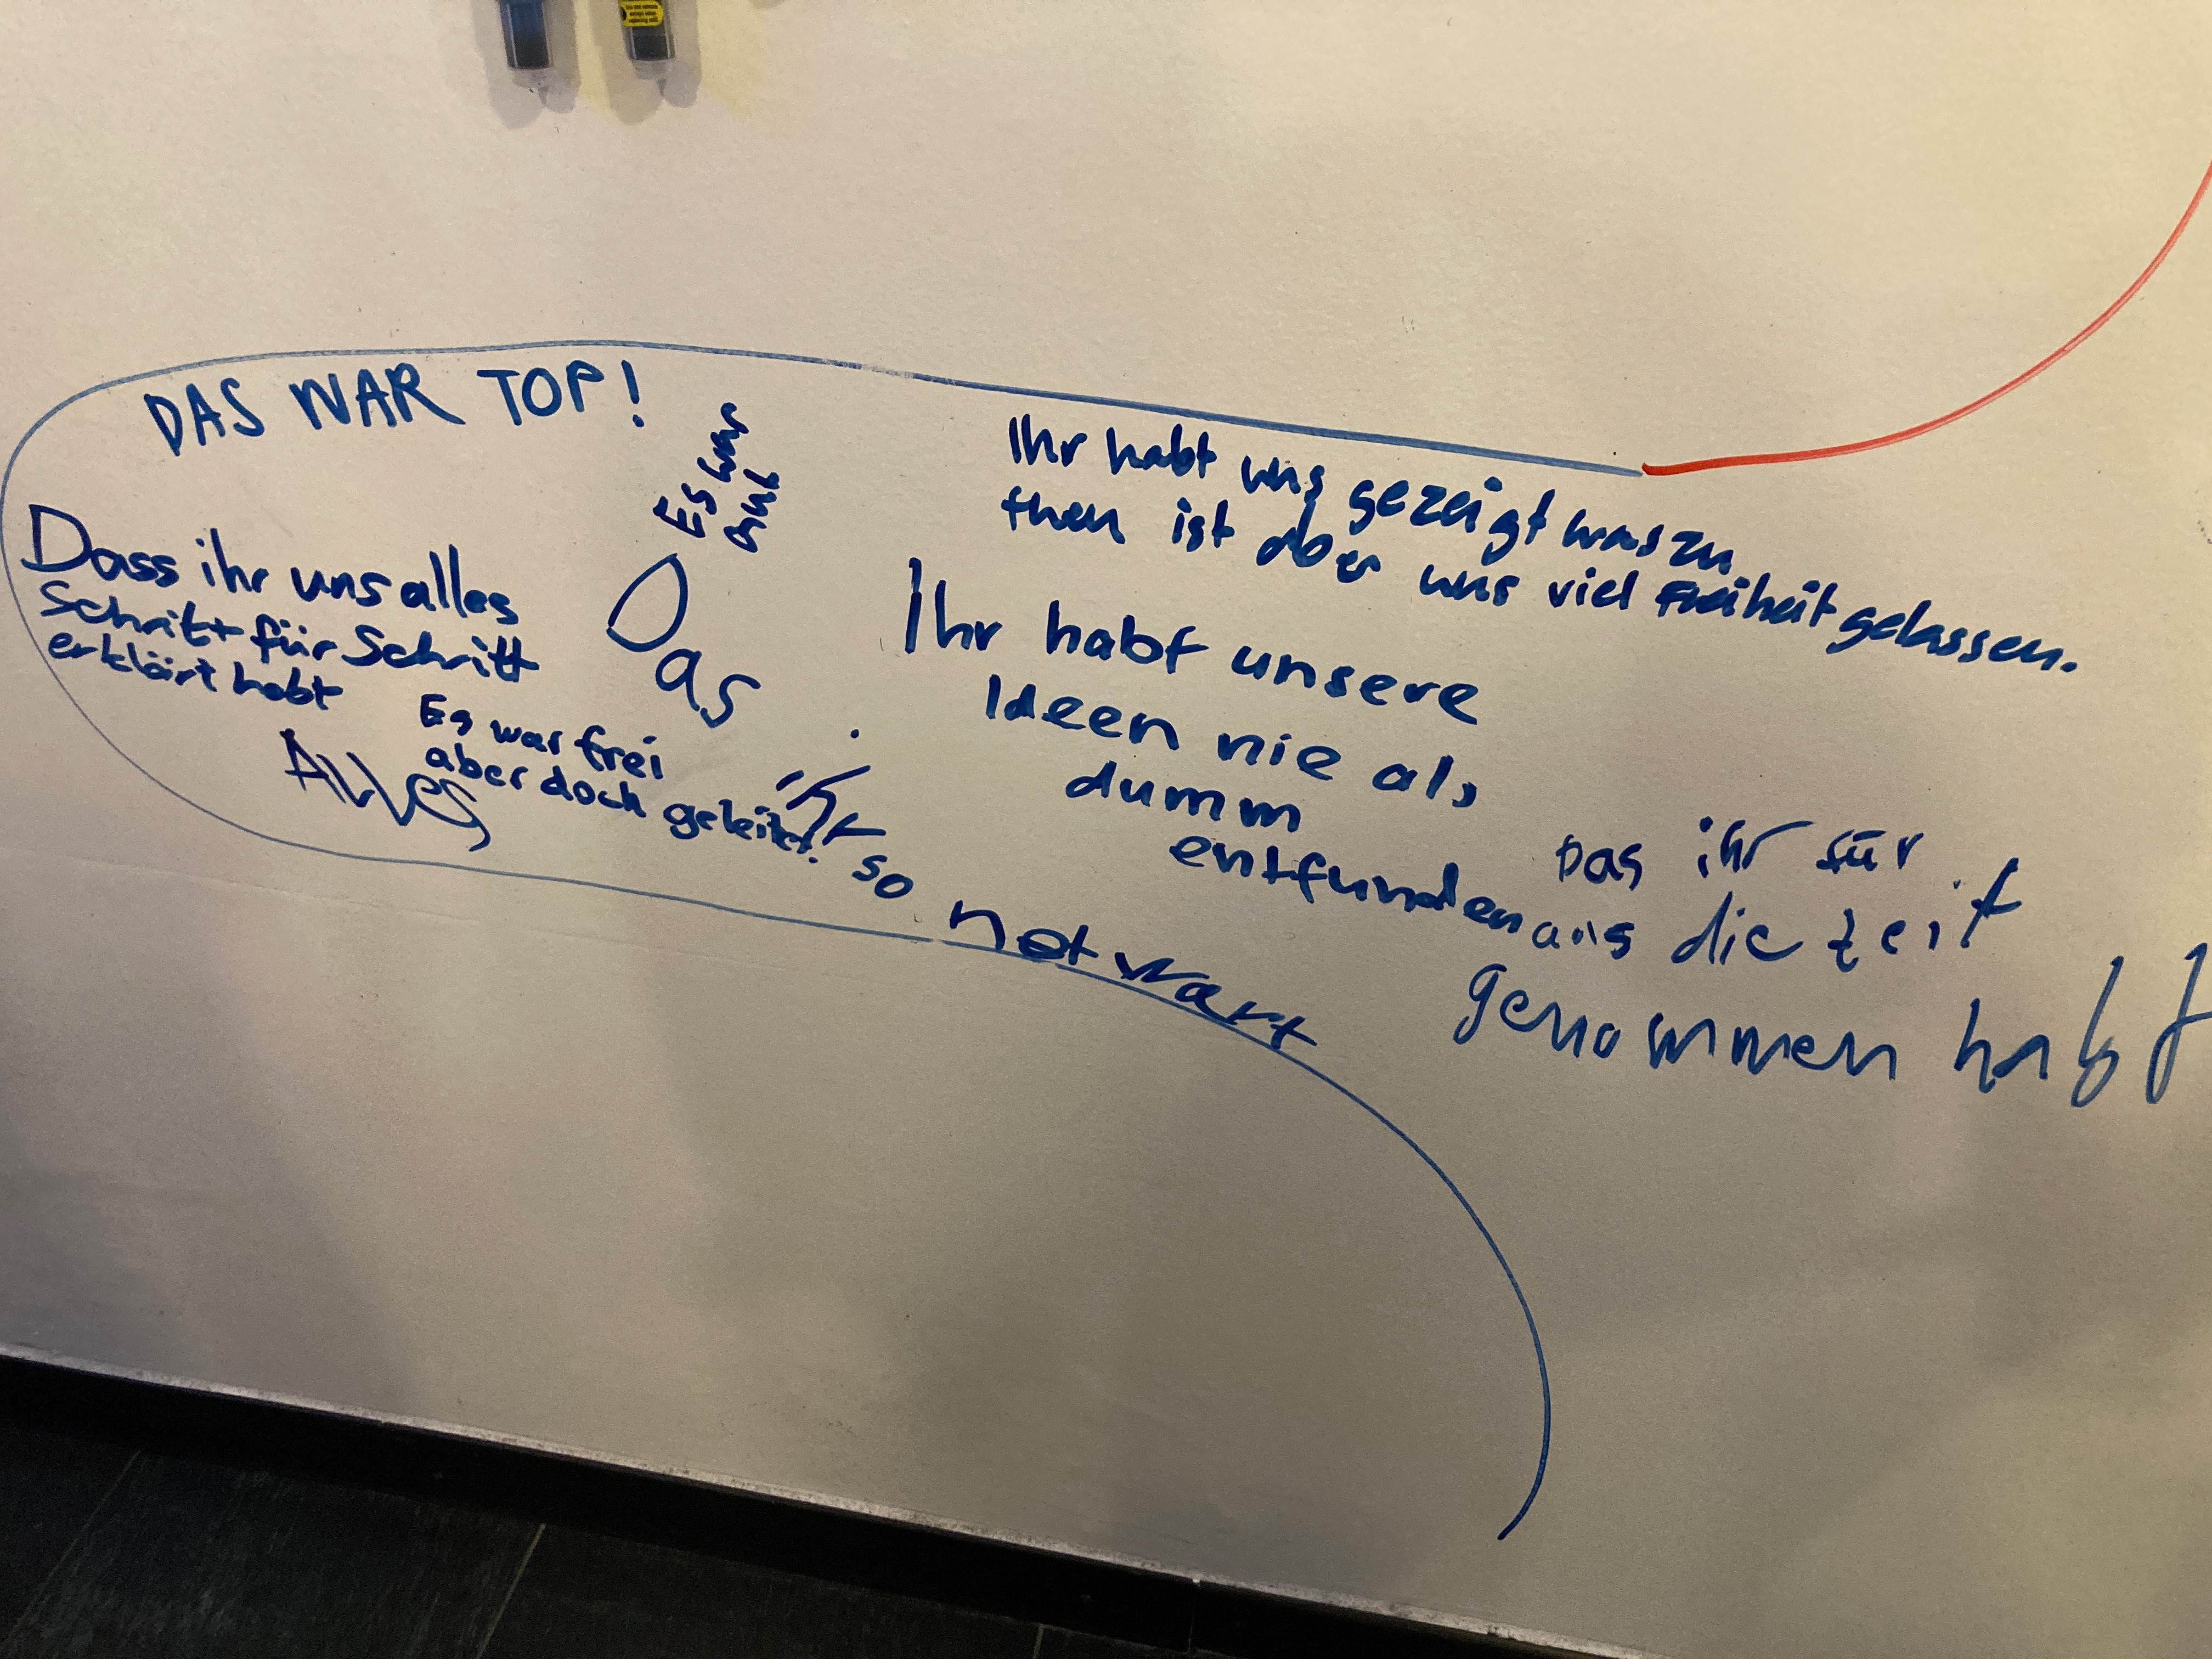 DAS WAR TOP!
Dass ihr uns alles
Schritt für Schritt
erklärt habt
Alles
Es war frei
aber doch geleitet.
Es war
gut
Das
ihr
so
net wart
Ihr habt uns gezeigt was zu
thun ist aber uns viel Freiheit gelassen.
Ihr habt unsere
Ideen nie als
dumm
entfunden
Das ihr für
uns die zeit
genommen habt